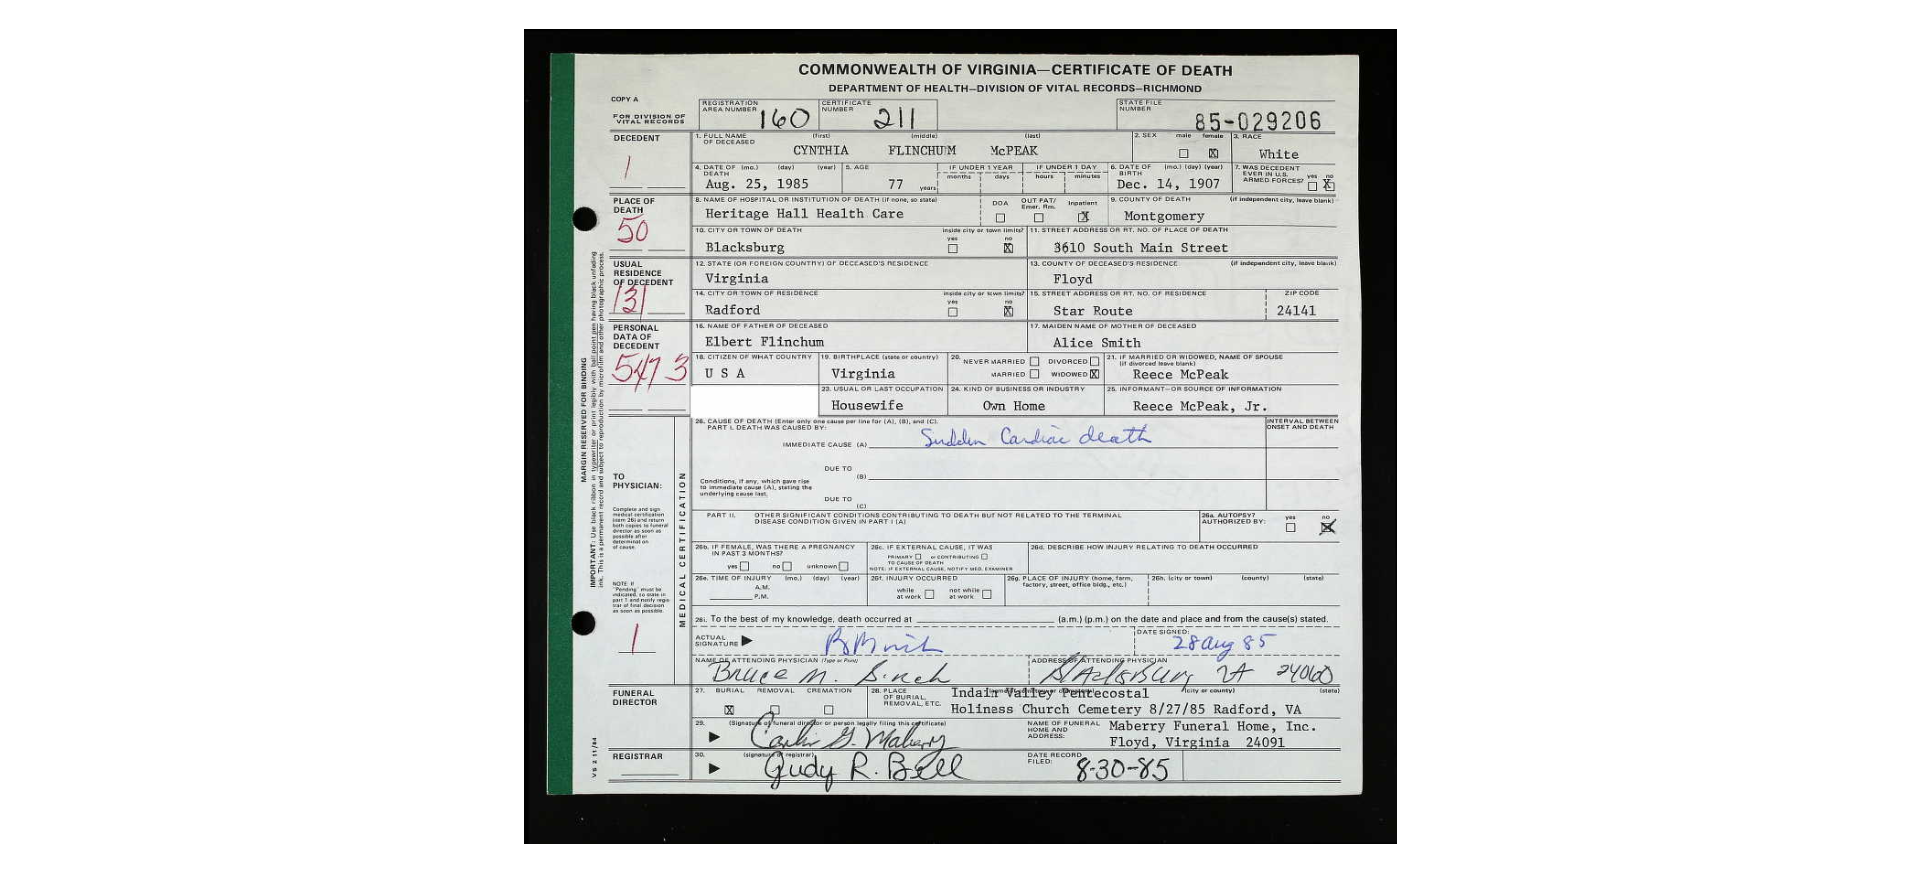 COMMONWEALTH OF VIRGINIA—CERTIFICATE OF DEATH
DEPARTMENT OF HEALTH—DIVISION OF VITAL RECORDS—RICHMOND
COPY A
FOR DIVISION OF VITAL RECORDS
REGISTRATION AREA NUMBER 160
CERTIFICATE NUMBER 211
STATE FILE NUMBER 85-029206
DECEDENT
1
1. FULL NAME OF DECEASED (first) (middle) (last)
CYNTHIA FLINCHUM McPEAK
2. SEX male female X
3. RACE White
4. DATE OF DEATH (mo.) (day) (year)
Aug. 25, 1985
5. AGE 77 years
IF UNDER 1 YEAR months days
IF UNDER 1 DAY hours minutes
6. DATE OF BIRTH (mo.) (day) (year)
Dec. 14, 1907
7. WAS DECEDENT EVER IN U.S. ARMED FORCES? yes no X
PLACE OF DEATH
50
8. NAME OF HOSPITAL OR INSTITUTION OF DEATH (if none, so state)
Heritage Hall Health Care
DOA OUT PAT/ Emer. Rm. Inpatient X
9. COUNTY OF DEATH (if independent city, leave blank)
Montgomery
10. CITY OR TOWN OF DEATH inside city or town limits? yes no X
Blacksburg
11. STREET ADDRESS OR RT. NO. OF PLACE OF DEATH
3610 South Main Street
USUAL RESIDENCE OF DECEDENT
131
12. STATE (OR FOREIGN COUNTRY) OF DECEASED'S RESIDENCE
Virginia
13. COUNTY OF DECEASED'S RESIDENCE (if independent city, leave blank)
Floyd
14. CITY OR TOWN OF RESIDENCE inside city or town limits? yes no X
Radford
15. STREET ADDRESS OR RT. NO. OF RESIDENCE ZIP CODE
Star Route 24141
PERSONAL DATA OF DECEDENT
5473
16. NAME OF FATHER OF DECEASED
Elbert Flinchum
17. MAIDEN NAME OF MOTHER OF DECEASED
Alice Smith
18. CITIZEN OF WHAT COUNTRY
U S A
19. BIRTHPLACE (state or country)
Virginia
20. NEVER MARRIED DIVORCED
MARRIED WIDOWED X
21. IF MARRIED OR WIDOWED, NAME OF SPOUSE (if divorced leave blank)
Reece McPeak
23. USUAL OR LAST OCCUPATION
Housewife
24. KIND OF BUSINESS OR INDUSTRY
Own Home
25. INFORMANT—OR SOURCE OF INFORMATION
Reece McPeak, Jr.
MARGIN RESERVED FOR BINDING
IMPORTANT: Use black ribbon in typewriter or print legibly with ball point pen having black unfading
ink. This is a permanent record and subject to reproduction by microfilm and other photographic process.
26. CAUSE OF DEATH (Enter only one cause per line for (A), (B), and (C).
PART I. DEATH WAS CAUSED BY:
INTERVAL BETWEEN ONSET AND DEATH
IMMEDIATE CAUSE (A) Sudden Cardiac death
DUE TO (B)
Conditions, if any, which gave rise to immediate cause (A), stating the underlying cause last.
DUE TO (C)
TO PHYSICIAN:
Complete and sign medical certification (item 26) and return both copies to funeral director as soon as possible after determination of cause.
NOTE: If "Pending" must be indicated, so state in part 1 and notify registrar of final decision as soon as possible.
1
MEDICAL CERTIFICATION
PART II. OTHER SIGNIFICANT CONDITIONS CONTRIBUTING TO DEATH BUT NOT RELATED TO THE TERMINAL
DISEASE CONDITION GIVEN IN PART I (A)
26a. AUTOPSY? AUTHORIZED BY: yes no X
26b. IF FEMALE, WAS THERE A PREGNANCY IN PAST 3 MONTHS?
yes no unknown
26c. IF EXTERNAL CAUSE, IT WAS
PRIMARY or CONTRIBUTING
TO CAUSE OF DEATH
NOTE: IF EXTERNAL CAUSE, NOTIFY MED. EXAMINER
26d. DESCRIBE HOW INJURY RELATING TO DEATH OCCURRED
26e. TIME OF INJURY (mo.) (day) (year)
A.M.
P.M.
26f. INJURY OCCURRED
while at work not while at work
26g. PLACE OF INJURY (home, farm, factory, street, office bldg., etc.)
26h. (city or town) (county) (state)
26i. To the best of my knowledge, death occurred at (a.m.) (p.m.) on the date and place and from the cause(s) stated.
ACTUAL SIGNATURE
DATE SIGNED: 28 Aug 85
NAME OF ATTENDING PHYSICIAN (Type or Print)
Bruce M.
ADDRESS OF ATTENDING PHYSICIAN
Blacksburg VA 24060
FUNERAL DIRECTOR
27. BURIAL REMOVAL CREMATION
X
28. PLACE OF BURIAL, REMOVAL, ETC. (city or county) (state)
Indain Valley Pentecostal
Holiness Church Cemetery 8/27/85 Radford, VA
29. (Signature of funeral director or person legally filing this certificate)
G. Maberry
NAME OF FUNERAL HOME AND ADDRESS:
Maberry Funeral Home, Inc.
Floyd, Virginia 24091
REGISTRAR
30. (signature of registrar)
Judy R. Bell
DATE RECORD FILED: 8-30-85
VS 2 11/84